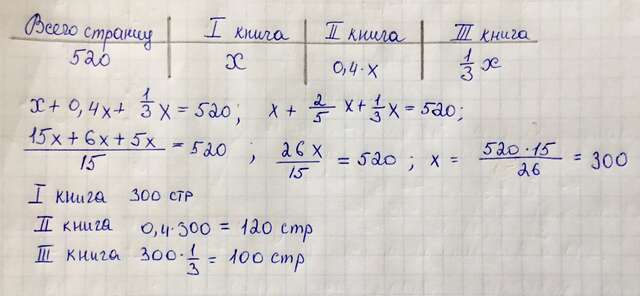 Всего страниц | I книга | II книга | III книга
520 | x | 0,4·x | 1/3 x
x + 0,4x + 1/3 x = 520; x + 2/5 x + 1/3 x = 520;
(15x + 6x + 5x)/15 = 520 ; 26x/15 = 520 ; x = (520·15)/26 = 300
I книга 300 стр
II книга 0,4·300 = 120 стр
III книга 300·1/3 = 100 стр